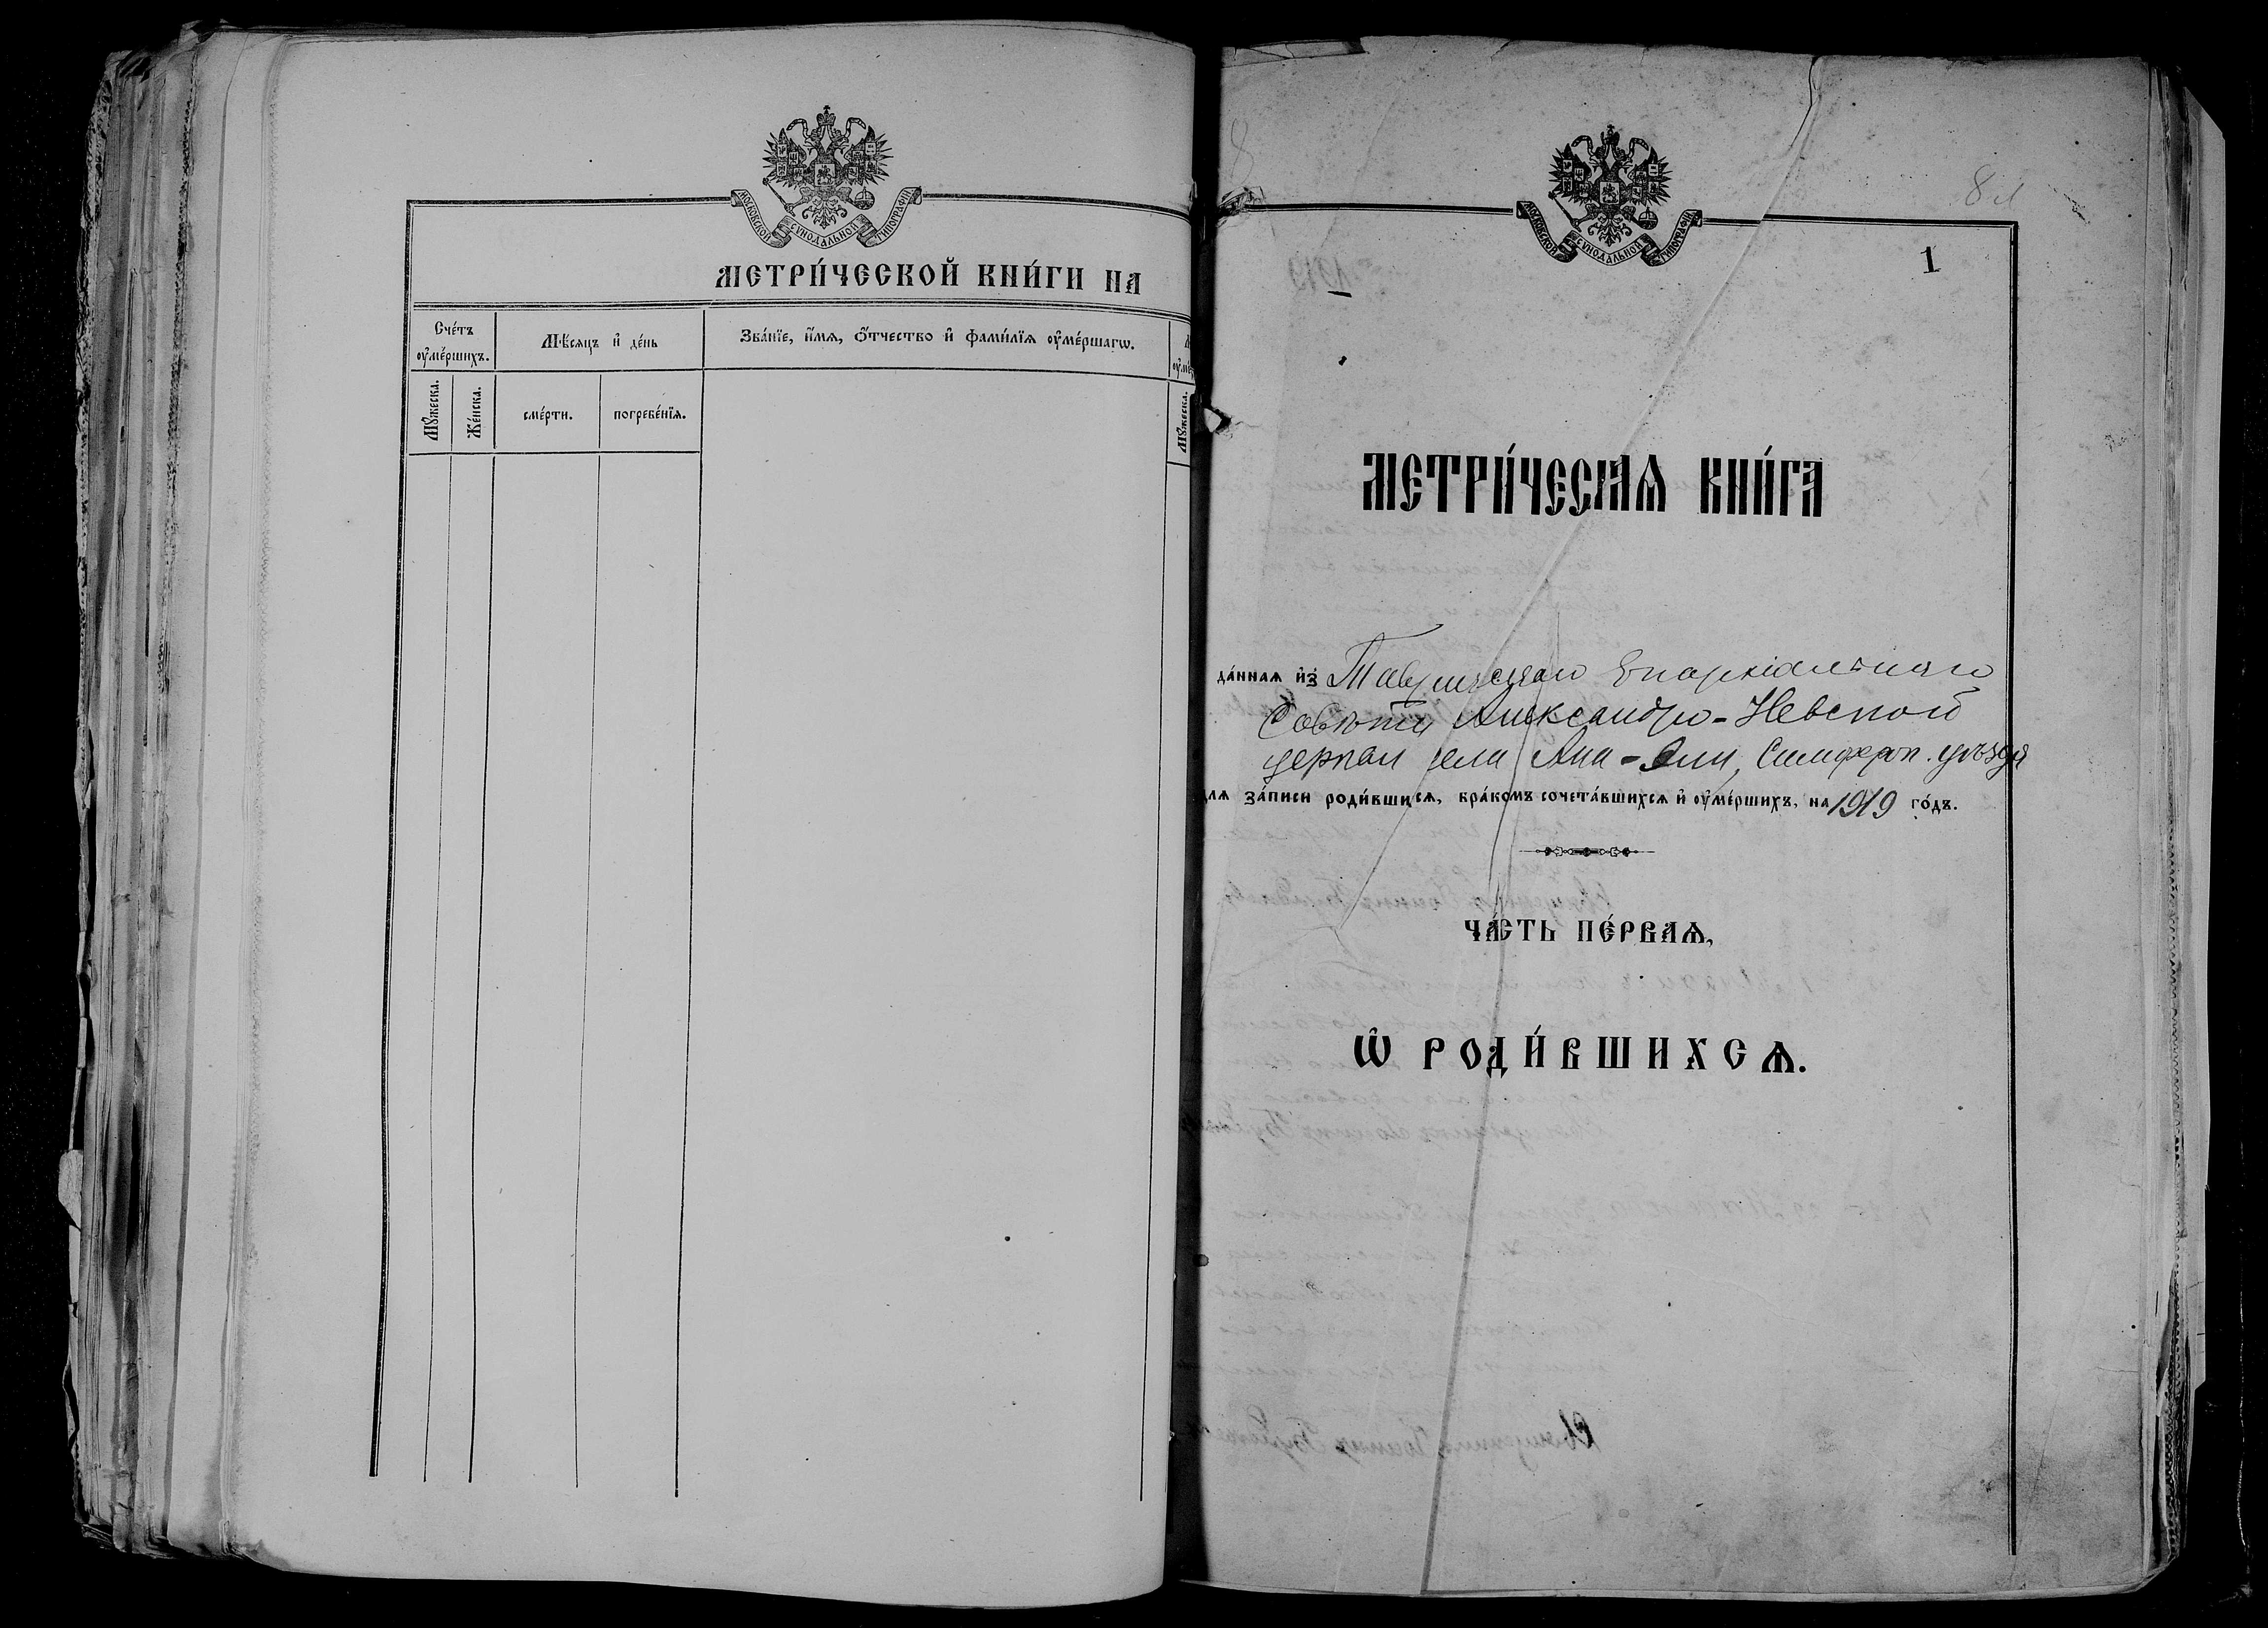 МОСКОВСКОЙ СѴНОДАЛЬНОЙ ТИПОГРАФІИ
МЕТРИ́ЧЕСКОЙ КНИ́ГИ НА
Сче́тъ ᲂу҆ме́ршихъ.
Мѣ́сѧцъ и҆ де́нь
Зва́нїе, и҆́мѧ, ѻ҆́тчество и҆ фами́лїѧ ᲂу҆ме́ршагѡ.
Мꙋ́жеска.
Же́нска.
сме́рти.
погребе́нїѧ.
Мꙋ́жеска.
МОСКОВСКОЙ СѴНОДАЛЬНОЙ ТИПОГРАФІИ
8 л
1
МЕТРИ́ЧЕСКАѦ КНИ́ГА
да́ннаѧ и҆з̾ Таврическаго Епархіальнаго
Совѣта Александро-Невской
церкви села Ана-Эли, Симфероп. уѣзда
для за́писи роди́вшихсѧ, бра́комъ сочета́вшихсѧ и҆ ᲂу҆ме́ршихъ, на 1919 го́дъ.
ЧА́СТЬ ПЕ́РВАѦ,
Ѡ҆ РОДИ́ВШИХСѦ.